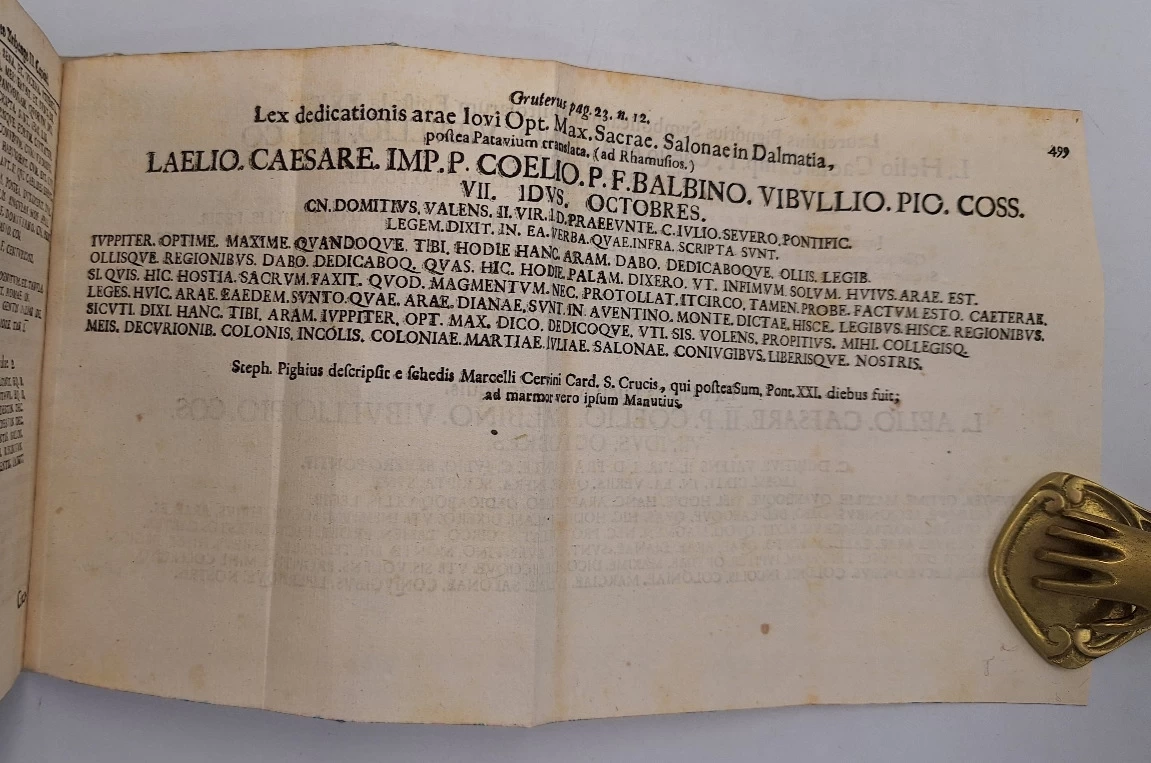 Gruterus pag. 23. n. 12.
Lex dedicationis arae Iovi Opt. Max. Sacrae. Salonae in Dalmatia,
postea Patavium translata. (ad Rhamusios.)
499
LAELIO. CAESARE. IMP. P. COELIO. P. F. BALBINO. VIBVLLIO. PIO. COSS.
VII. IDVS. OCTOBRES.
CN. DOMITIVS. VALENS. II. VIR. I.D. PRAEEVNTE. C. IVLIO. SEVERO. PONTIFIC.
LEGEM. DIXIT. IN. EA. VERBA. QVAE. INFRA. SCRIPTA SVNT.
IVPPITER. OPTIME. MAXIME. QVANDOQVE. TIBI. HODIE HANC ARAM. DABO. DEDICABOQVE. OLLIS. LEGIB.
OLLISQVE. REGIONIBVS. DABO. DEDICABOQ. QVAS. HIC. HODIE. PALAM. DIXERO. VT. INFIMVM. SOLVM. HVIVS. ARAE. EST.
SI. QVIS. HIC. HOSTIA. SACRVM. FAXIT. QVOD. MAGMENTVM. NEC. PROTOLLAT. ITCIRCO. TAMEN. PROBE. FACTVM ESTO. CAETERAE.
LEGES. HVIC. ARAE. EAEDEM. SVNTO. QVAE. ARAE. DIANAE. SVNT. IN. AVENTINO. MONTE. DICTAE. HISCE. LEGIBVS. HISCE. REGIONIBVS.
SICVTI. DIXI. HANC. TIBI. ARAM. IVPPITER. OPT. MAX. DICO. DEDICOQVE. VTI. SIS. VOLENS. PROPITIVS. MIHI. COLLEGISQ.
MEIS. DECVRIONIB. COLONIS. INCOLIS. COLONIAE. MARTIAE. IVLIAE. SALONAE. CONIVGIBVS. LIBERISQVE. NOSTRIS.
Steph. Pighius descripsit e schedis Marcelli Cervini Card. S. Crucis, qui postea Sum. Pont. XXI. diebus fuit;
ad marmor vero ipsum Manutius.